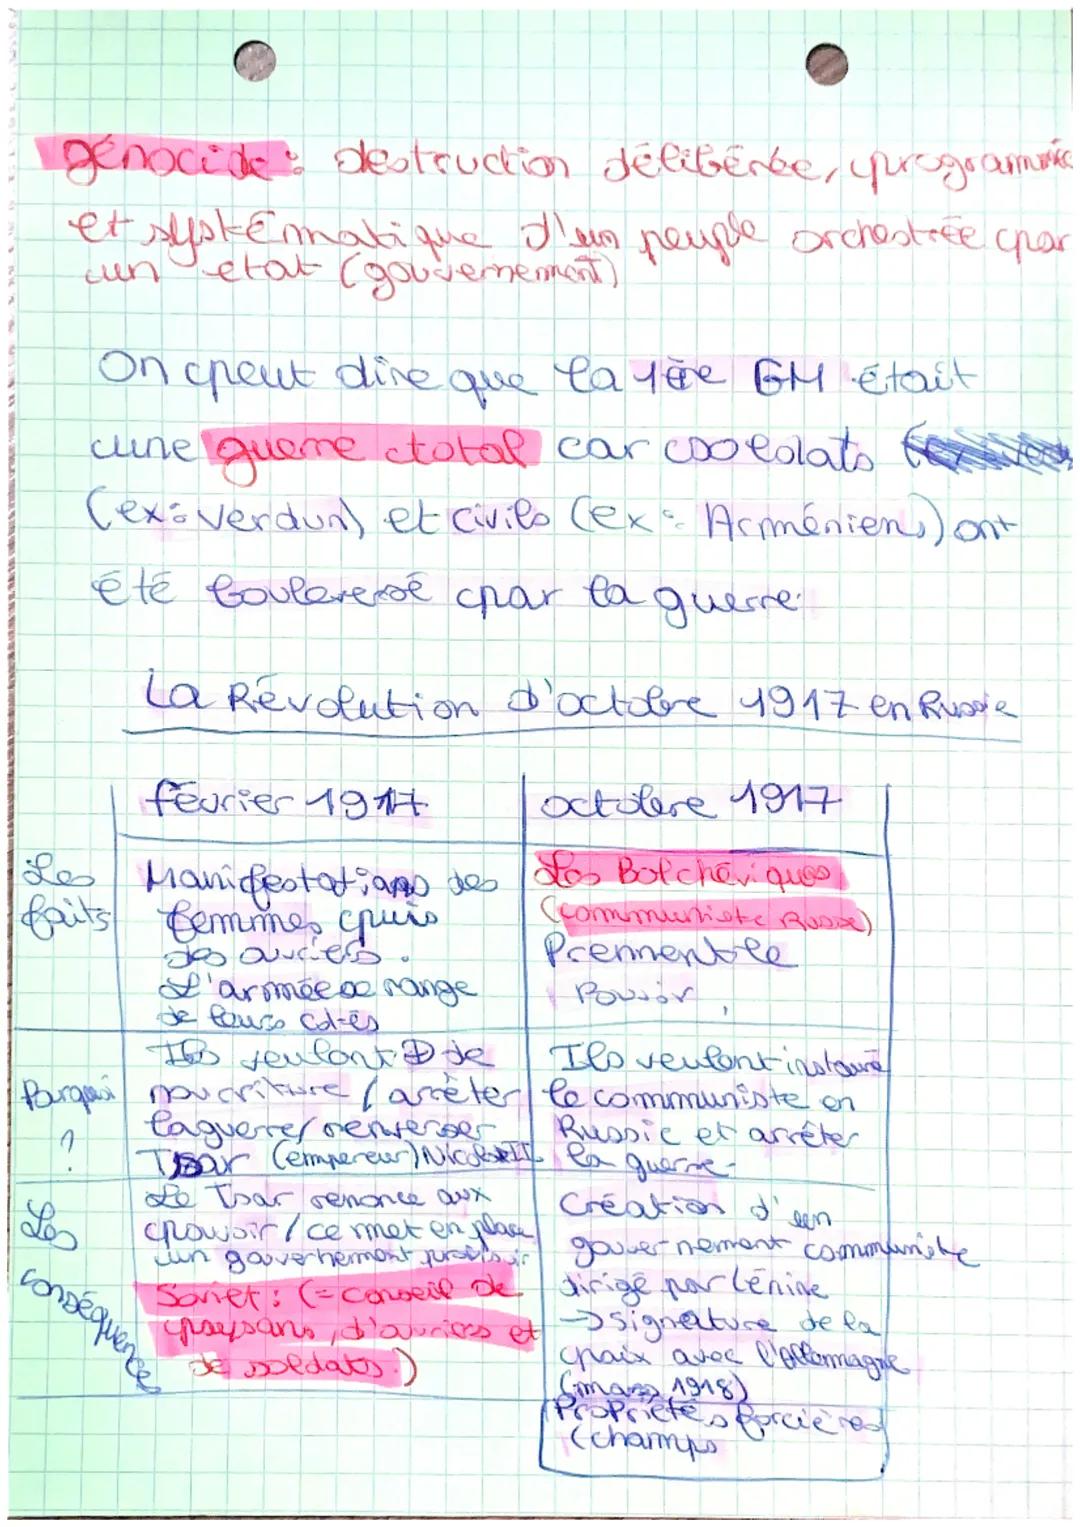 génocide : destruction délibérée, programmée
et systématique d'un peuple orchestrée par
un etat (gouvernement)
On peut dire que la 1ère GM était
une guerre total car soldats
(ex: verdun) et civils (ex: Arméniens) ont
été boulversé par la guerre.
La Révolution d'octobre 1917 en Russie
février 1917
octobre 1917
Les
faits
Manifestations des
femmes, puis
des ouvriers.
L'armée se range
de leurs cotés
Les Bolchéviques
(communiste Russe)
Prennent le
Pouvoir
Pourquoi
?
Ils veulent + de
nourriture / arrêter
la guerre/ renverser
Tsar (empereur) Nicolas II
Ils veulent instauré
le communiste en
Russie et arrêter
la guerre.
Les
conséquences
Le Tsar renonce aux
pouvoir / ce met en place
un gouvernement provisoir
Soviet : (= conseil de
paysans, d'ouvriers et
de soldats.)
Création d'un
gouvernement communiste
dirigé par Lénine
→ signature de la
paix avec l'Allemagne
(mars 1918)
Propriétés foncières
(champs